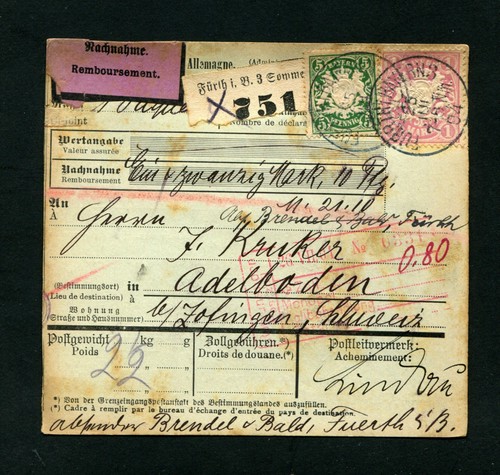 Nachnahme.
Remboursement.
Allemagne.
Fürth i. B. 3
751
5
BAYERN
PFENNIG
1
Nombre de déclara
Wertangabe
Valeur assurée
Nachnahme
Remboursement
Ein & zwanzig Mark, 10 Pfg
M. 21.10
Brendel & Bald, Fürth
An
A
Herrn
J. Kruker
0.80
(Bestimmungsort)
(Lieu de destination)
in
à
Adelboden
Wohnung
(Straße und Hausnummer)
b/Zofingen, Schweiz
Postgewicht
Poids
kg
g
Zollgebühren.(*)
Droits de douane.(*)
Postleitvermerk:
Acheminement:
kg
g
Lindau
*) Von der Grenzeingangspostanstalt des Bestimmungslandes auszufüllen.
*) Cadre à remplir par le bureau d'échange d'entrée du pays de destination.
absender Brendel & Bald, Fuerth i/B.